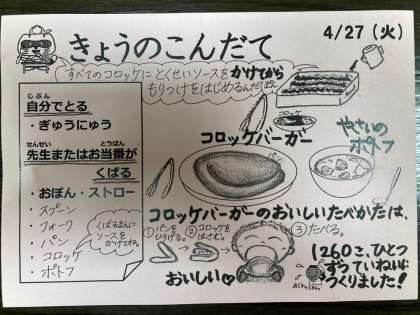 きょうのこんだて
4/27（火）
すべてのコロッケに とくせいソースをかけてから
もりつけをはじめるんだぽん
自分でとる
じぶん
・ぎゅうにゅう
せんせい とうばん
先生またはお当番が
くばる
・おぼん・ストロー
・スプーン
・フォーク
・パン
・コロッケ
・ポトフ
くばるまえに
ソースを
かけてね。
コロッケ
コロッケバーガー
パン
やさいの
ポトフ
コロッケバーガーのおいしいたべかたは、
①パンを
ひろげる。
②コロッケを
はさむ。
③たべる。
おいしい♡
1260こ、ひとつ
ずつていねいに
つくりました！